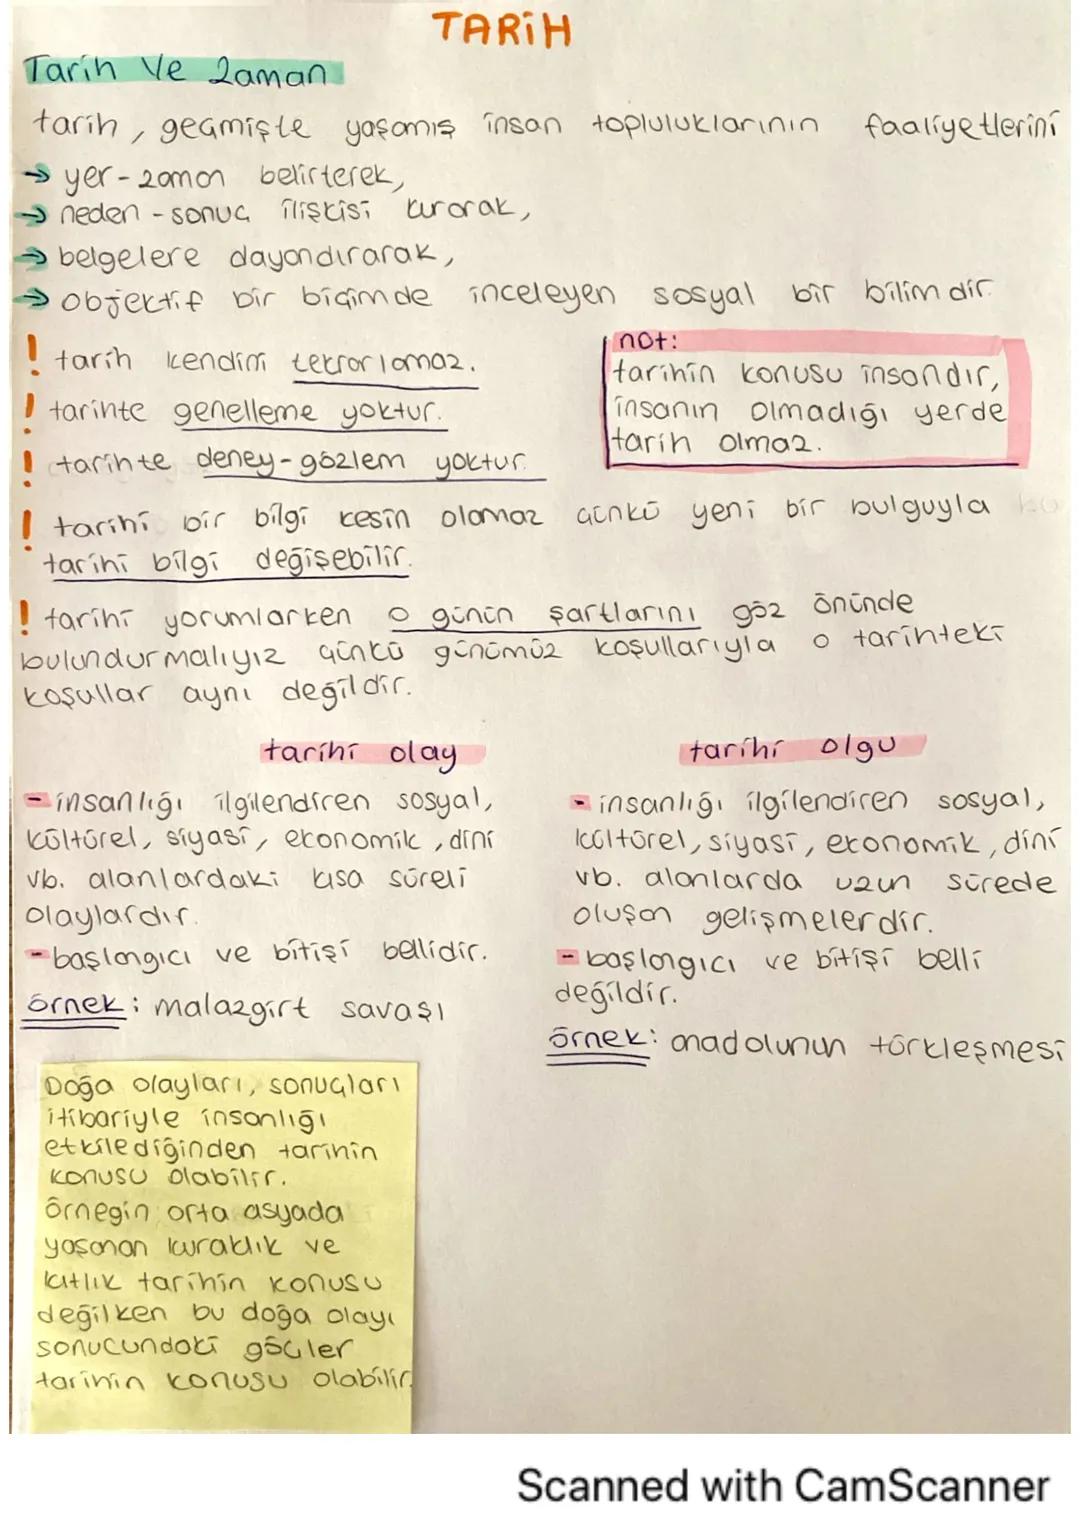 TARİH
Tarih Ve Zaman
tarih, geçmişte yaşamış insan topluluklarının faaliyetlerini
→ yer-zaman belirterek,
→ neden-sonuç ilişkisi kurarak,
→ belgelere dayandırarak,
→ objektif bir biçimde inceleyen sosyal bir bilimdir.
! tarih kendini tekrarlamaz.
! tarihte genelleme yoktur.
! tarihte deney-gözlem yoktur.
not:
tarihin konusu insandır,
insanın olmadığı yerde
tarih olmaz.
! tarihi bir bilgi kesin olamaz çünkü yeni bir bulguyla bu
tarihi bilgi değişebilir.
! tarihi yorumlarken o günün şartlarını göz önünde
bulundurmalıyız çünkü günümüz koşullarıyla o tarihteki
koşullar aynı değildir.
tarihi olay
- insanlığı ilgilendiren sosyal,
kültürel, siyasi, ekonomik, dini
vb. alanlardaki kısa süreli
olaylardır.
- başlangıcı ve bitişi bellidir.
örnek: malazgirt savaşı
tarihi olgu
- insanlığı ilgilendiren sosyal,
kültürel, siyasi, ekonomik, dini
vb. alanlarda uzun sürede
oluşan gelişmelerdir.
- başlangıcı ve bitişi belli
değildir.
örnek: anadolunun türkleşmesi
Doğa olayları, sonuçları
itibariyle insanlığı
etkilediğinden tarihin
konusu olabilir.
örnegin orta asyada
yaşanan kuraklık ve
kıtlık tarihin konusu
değilken bu doğa olayı
sonucundaki göçler
tarihin konusu olabilir.
Scanned with CamScanner